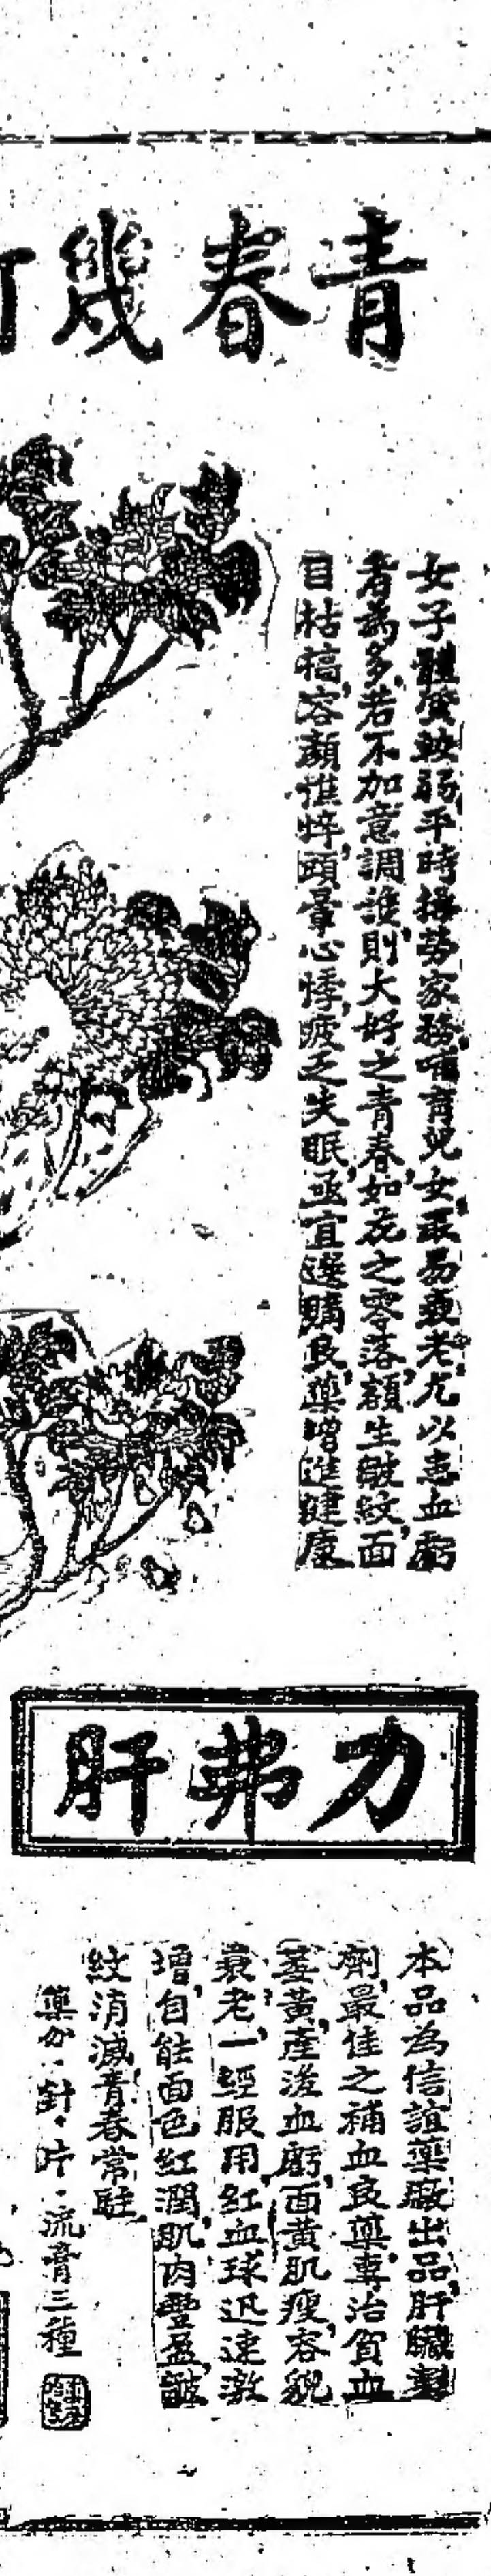 青春幾
女子體質較弱，平時操勞家務，哺育兒女，最易衰老，尤以患血虧
者為多，若不加意調護，則大好之青春，如花之零落，額生皺紋，面
目枯槁，容顏憔悴，頭暈心悸，疲乏失眠，亟宜選購良藥，增進健康
力弗肝
本品為信誼藥廠出品，肝臟製
劑，最佳之補血良藥，專治貧血
萎黃，產後血虧，面黃肌瘦，容貌
衰老，一經服用，紅血球迅速激
增，自能面色紅潤，肌肉豐盈，皺
紋消滅，青春常駐
藥分·針·片·流膏三種